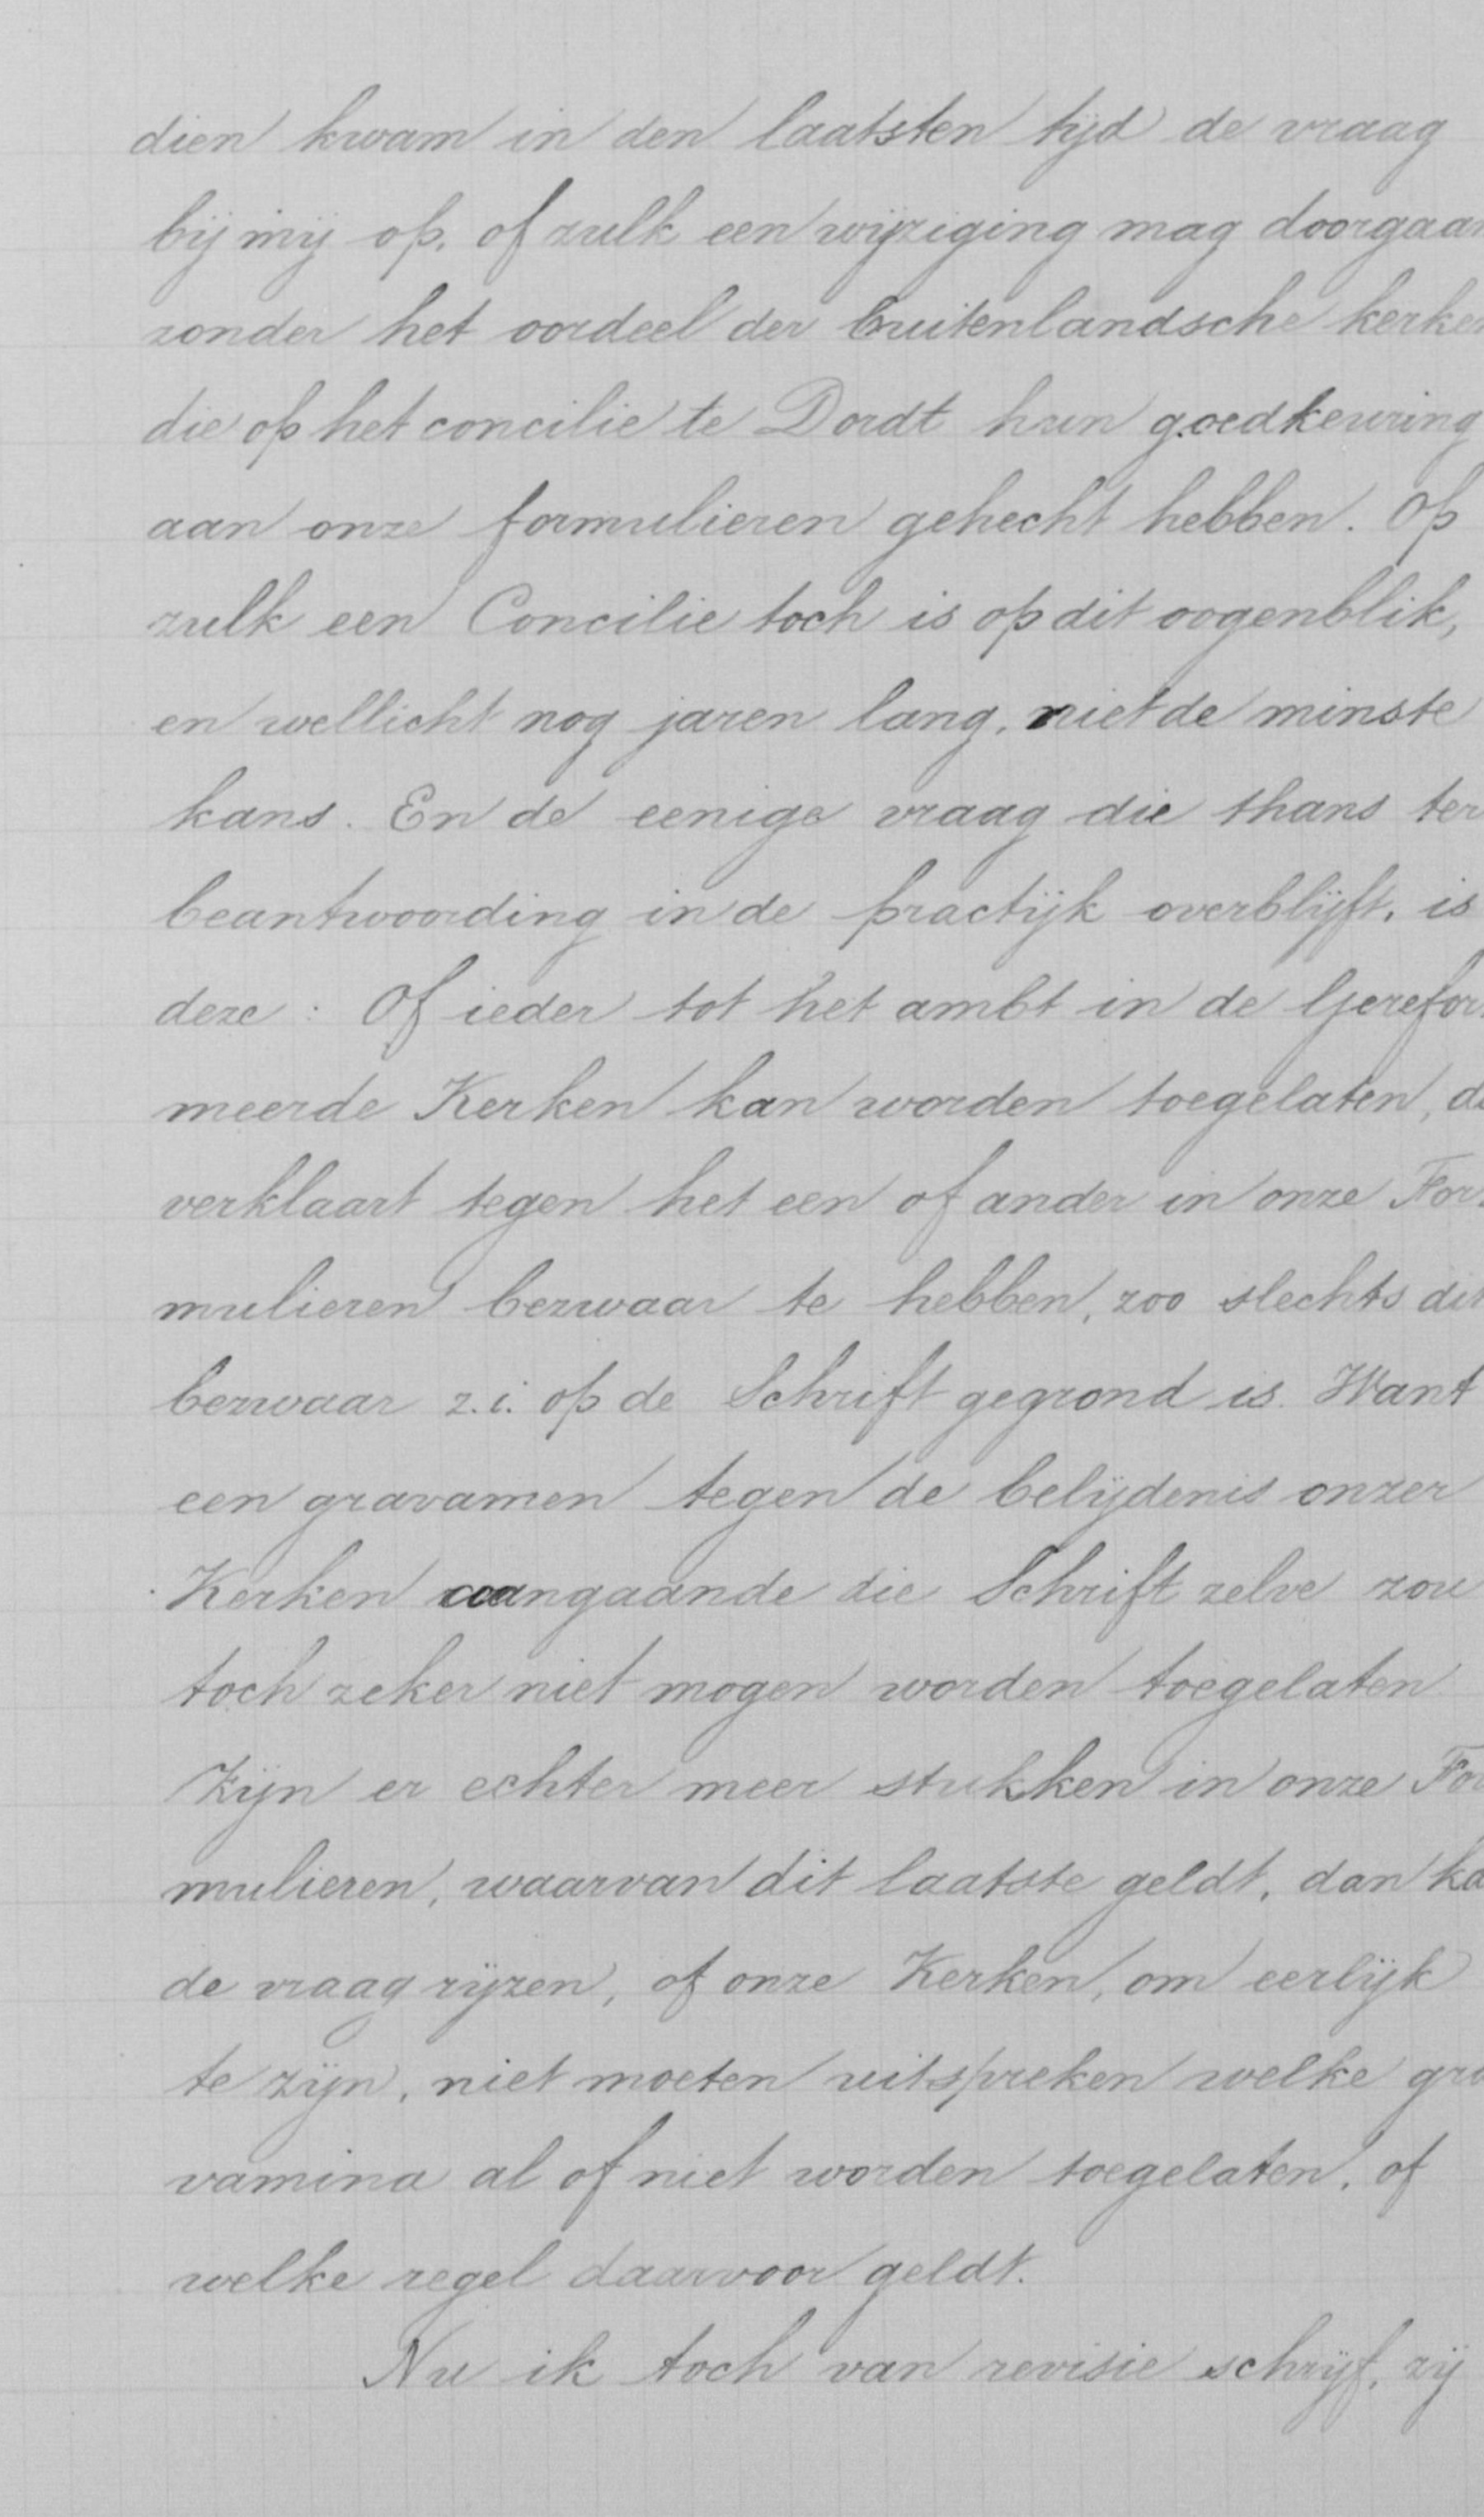 dien kwam in den laatsten tijd de vraag
bij mij op, of zulk een wijziging mag doorgaan
zonder het oordeel der buitenlandsche kerken
die op het concilie te Dordt hun goedkeuring
aan onze formulieren gehecht hebben. Op
zulk een Concilie toch is op dit oogenblik,
en wellicht nog jaren lang, niet de minste
kans. En de eenige vraag die thans ter
beantwoording in de practijk overblijft, is
deze: Of ieder tot het ambt in de Gerefor
meerde Kerken kan worden toegelaten, di
verklaart tegen het een of ander in onze For
mulieren bezwaar te hebben, zoo slechts dit
bezwaar z.i. op de Schrift gegrond is. Want
een gravamen tegen de belijdenis onzer
Kerken aangaande die Schrift zelve zou
toch zeker niet mogen worden toegelaten
Zijn er echter meer stukken in onze For
mulieren, waarvan dit laatste geldt, dan ka
de vraag rijzen, of onze Kerken, om eerlijk
te zijn, niet moeten uitspreken welke gra
vamina al of niet worden toegelaten, of
welke regel daarvoor geldt.
Nu ik toch van revisie schrijf, zij